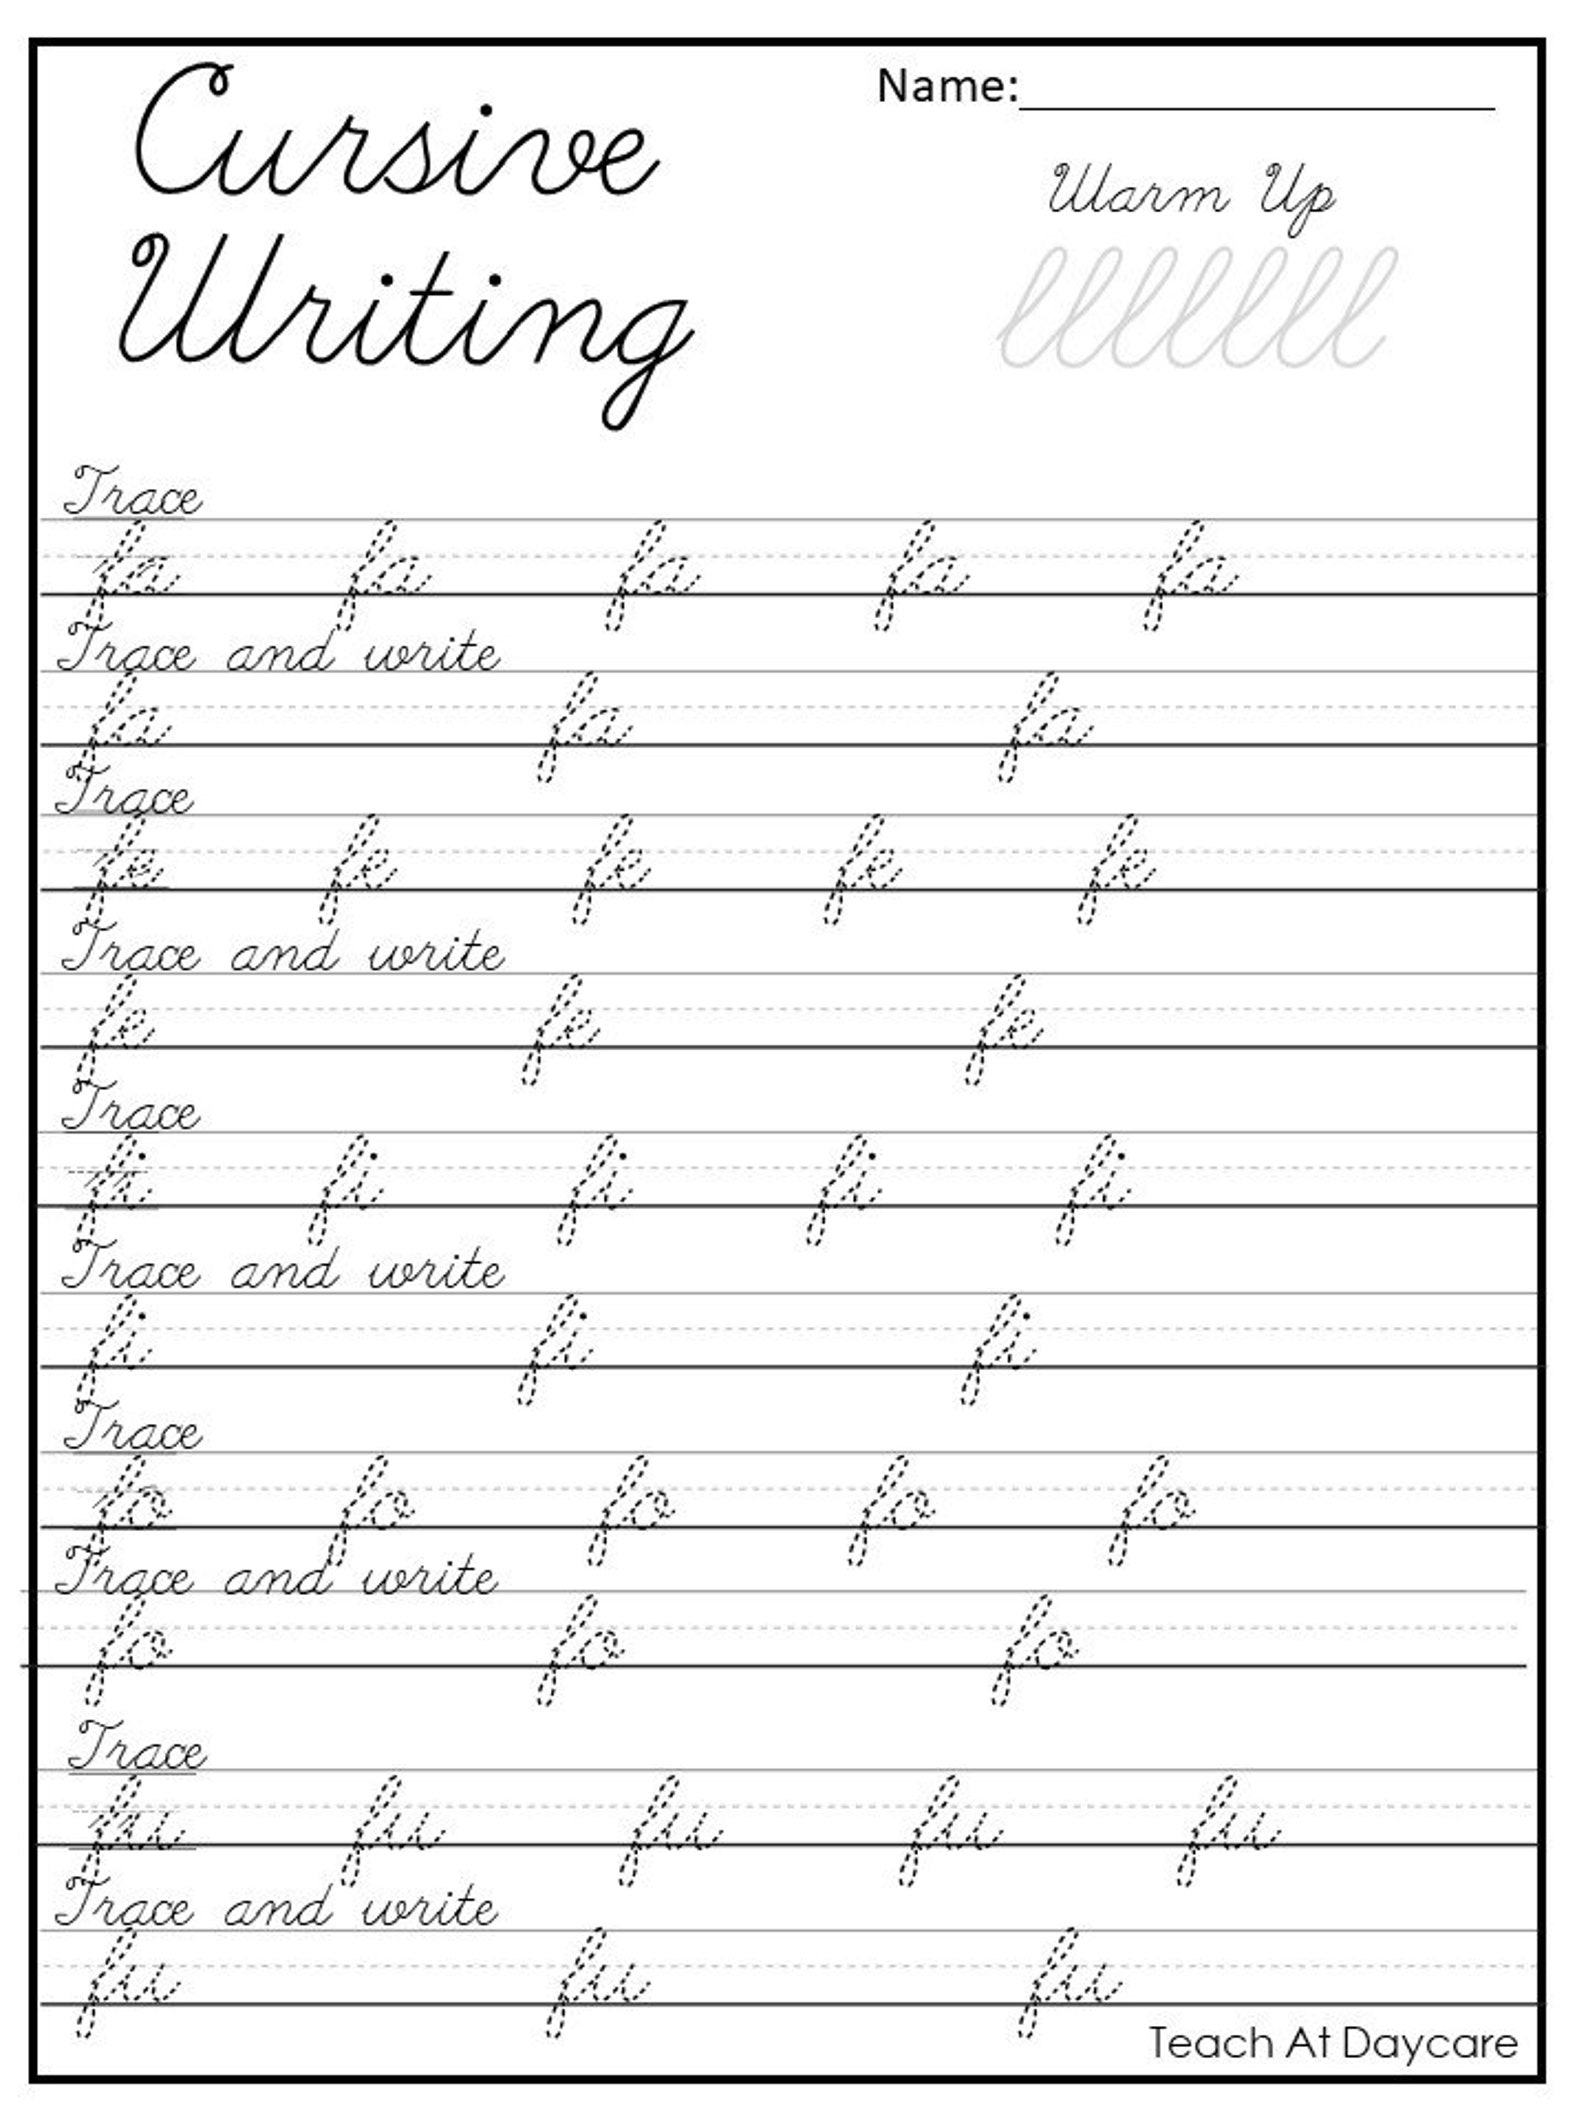 Name:
Cursive
Writing
Warm Up
lllllll
Trace
fa fa fa fa fa
Trace and write
fa fa fa
Trace
fe fe fe fe fe
Trace and write
fe fe fe
Trace
fi fi fi fi fi
Trace and write
fi fi fi
Trace
fo fo fo fo fo
Trace and write
fo fo fo
Trace
fu fu fu fu fu
Trace and write
fu fu fu
Teach At Daycare